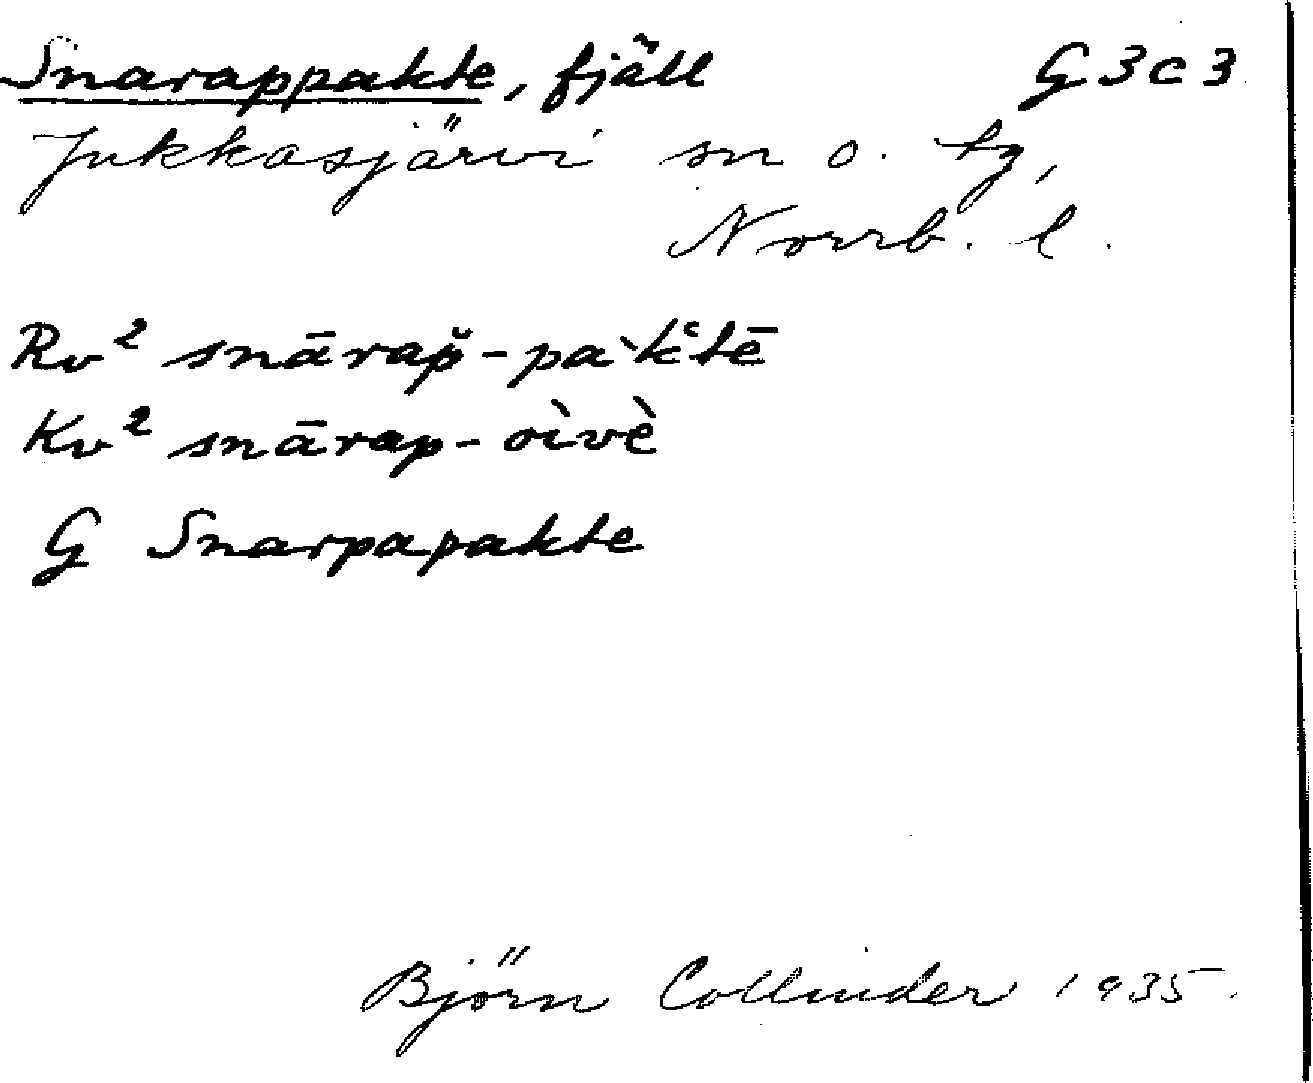 Snarappakte, fjäll G 3 c 3
Jukkasjärvi sn o. tg,
Norrb. l.
Rv² snārap̌-pa`k̔tē
Kv² snārap-oìvè
G Snarpapakte
Björn Collinder 1935.